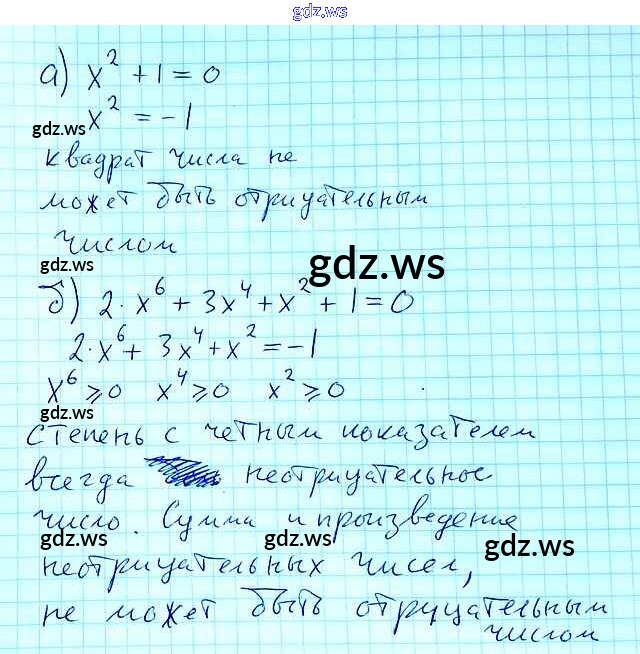 gdz.ws
а) x² + 1 = 0
gdz.ws x² = -1
квадрат числа не
может быть отрицательным
числом
gdz.ws
gdz.ws
б) 2·x⁶ + 3x⁴ + x² + 1 = 0
2·x⁶ + 3x⁴ + x² = -1
x⁶ ⩾ 0 x⁴ ⩾ 0 x² ⩾ 0
gdz.ws
степень с четным показателем
всегда неотрицательное
число. Сумма и произведение
gdz.ws gdz.ws gdz.ws
неотрицательных чисел,
не может быть отрицательным
числом
gdz.ws